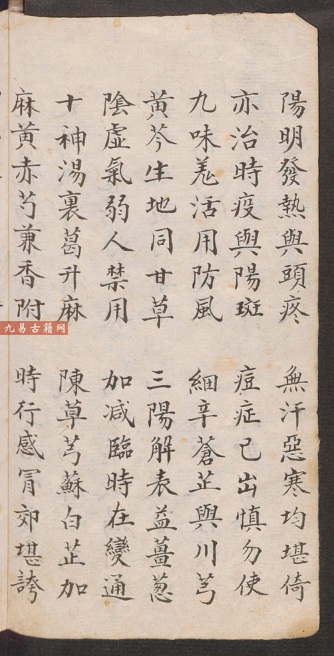 陽明發熱與頭疼 無汗惡寒均堪倚
亦治時疫與陽斑 痘症已出慎勿使
九味羗活用防風 細辛蒼芷與川芎
黃芩生地同甘草 三陽解表益薑葱
陰虛氣弱人禁用 加减臨時在變通
十神湯裏葛升麻 陳草芎蘇白芷加
麻黃赤芍兼香附 時行感冒郊堪誇
九易古籍网